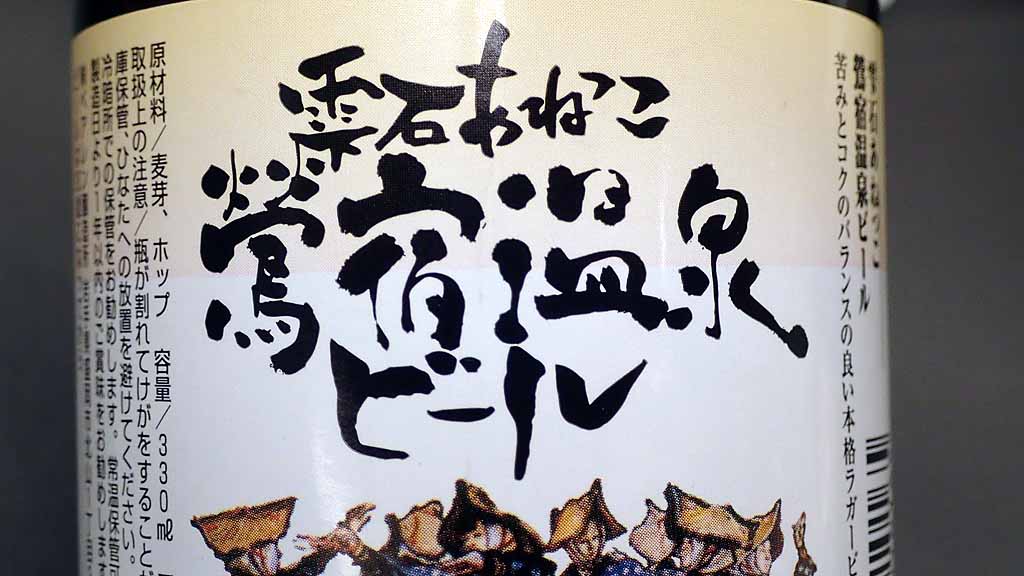 雫石あねっこ
鶯宿温泉
ビール
雫石あねっこ
鶯宿温泉ビール
苦みとコクのバランスの良い本格ラガービ
原材料/麦芽、ホップ 容量/330㎖
取扱上の注意/瓶が割れてけがをすることが
庫保管、ひなたへの放置を避けてください。
冷暗所での保管をお勧めします。常温保管可
製造日より1年以内のご賞味をお勧めします